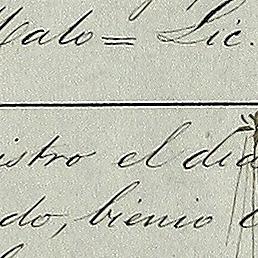 Malo = Lic.
istro el dia
do, bienio